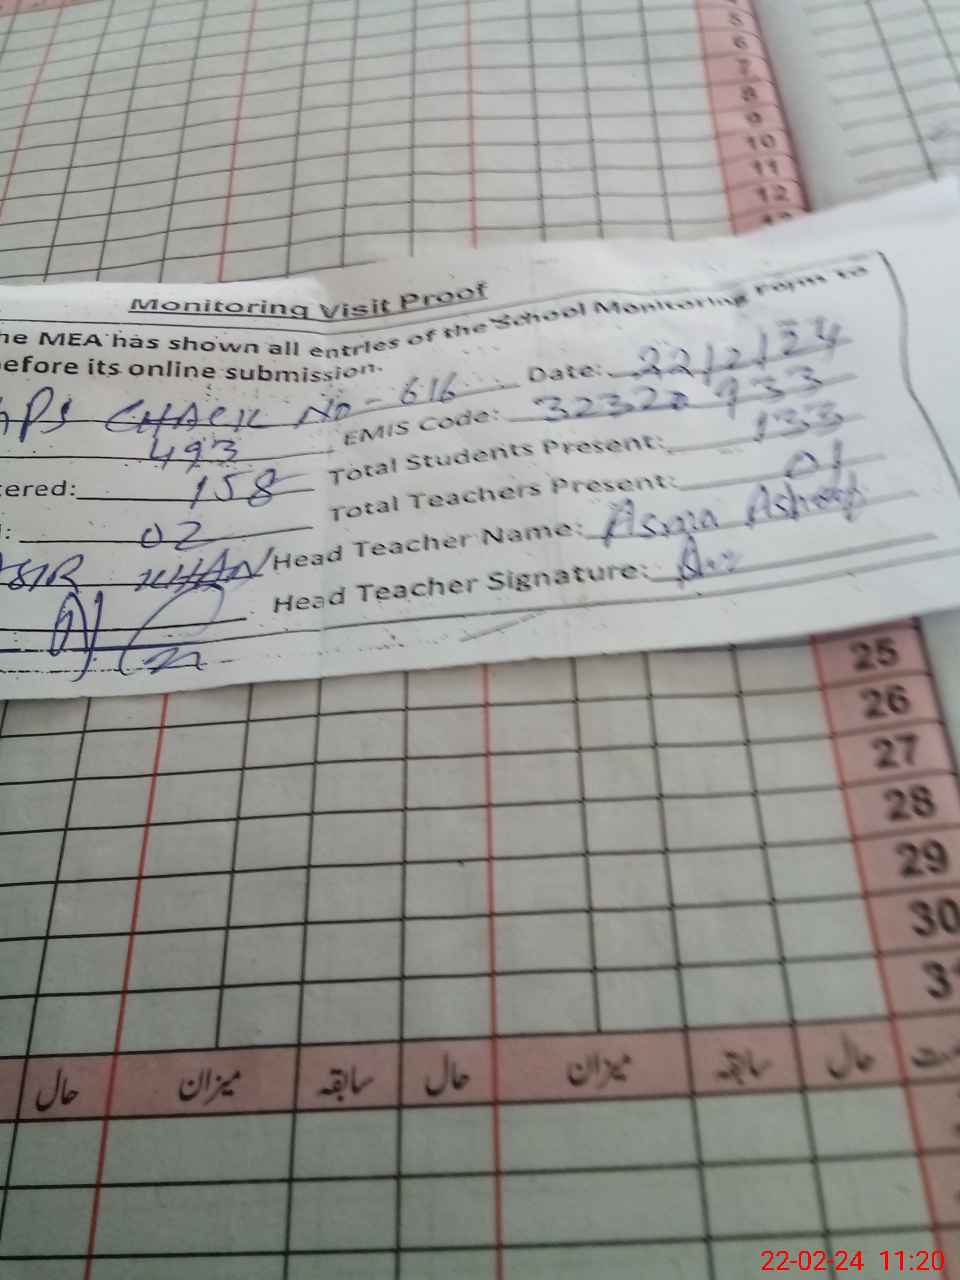 5
6
7
8
9
10
11
12
Monitoring Visit Proof
he MEA has shown all entries of the School Monitoring Form to
efore its online submission.
GPS CHACK No - 616 Date: 22/2/24
493 EMIS Code: 32320933
tered: 158 Total Students Present: 133
: 02 Total Teachers Present: 01
ASIR KHAN Head Teacher Name: Asma Ashraf
Head Teacher Signature:
25
26
27
28
29
30
3
حال میزان سابقہ حال میزان سابقہ حال
22-02-24 11:20